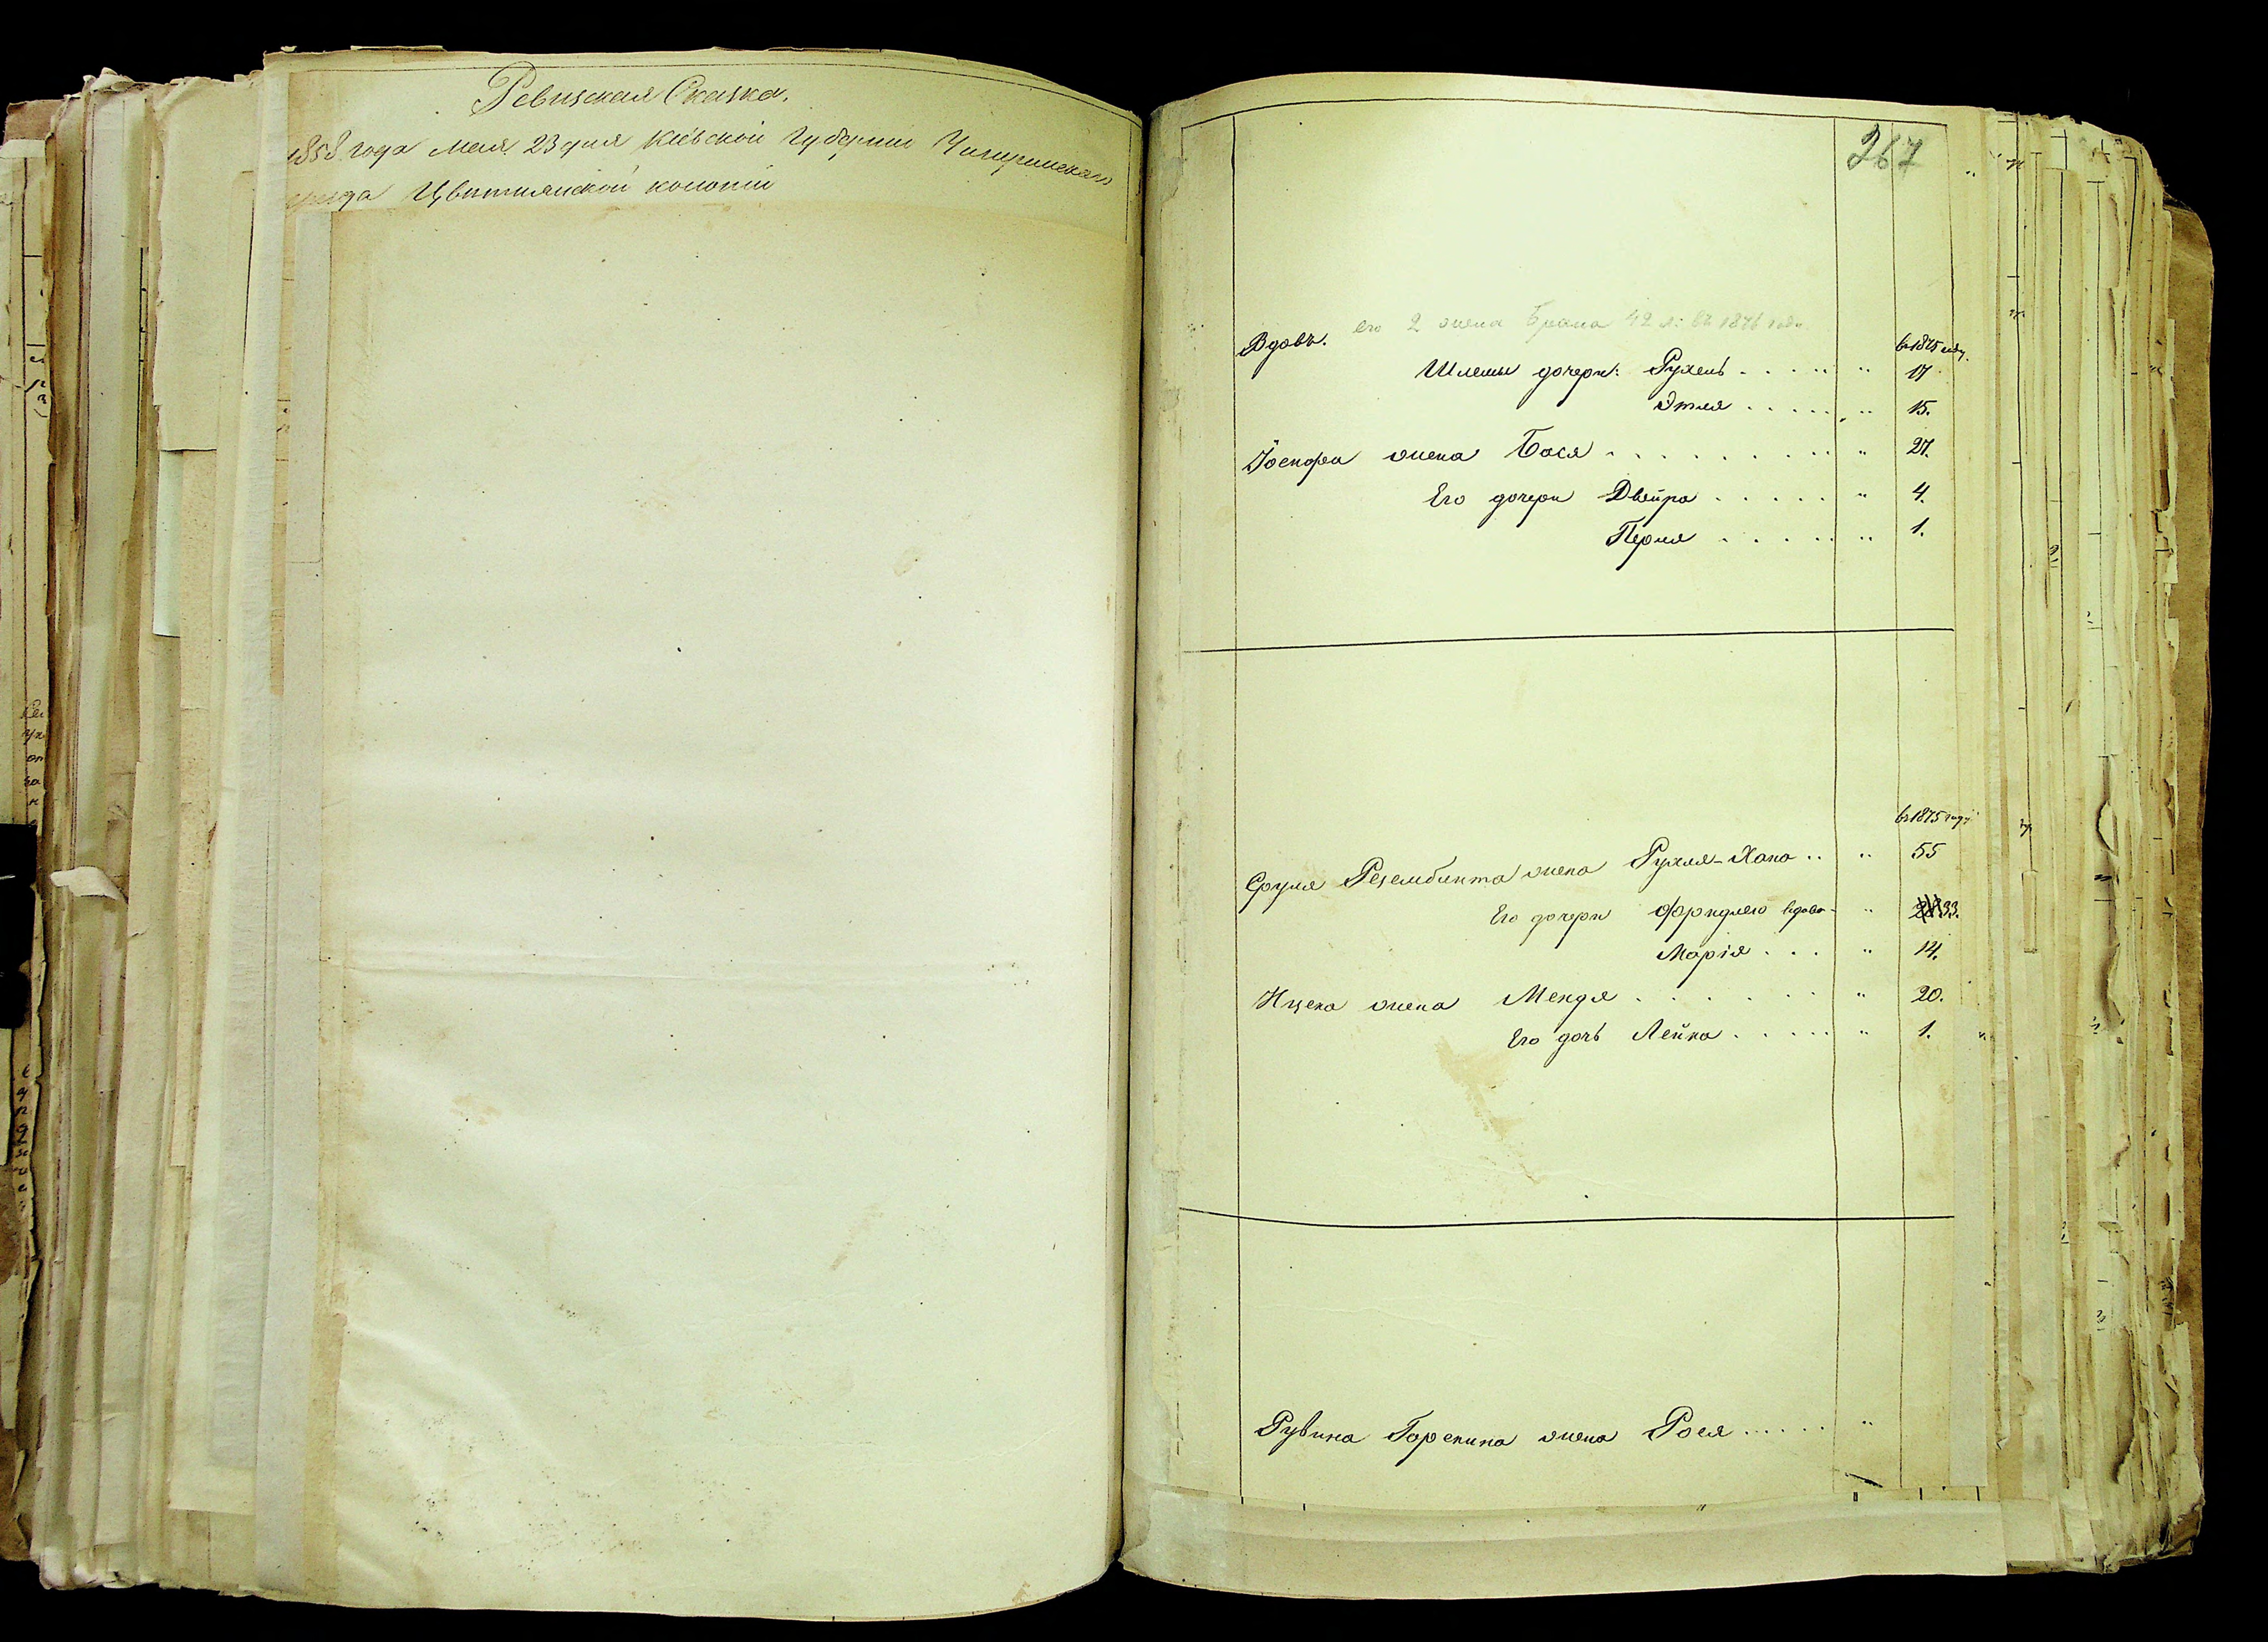 Ревизская Сказка.
1858 года Мая 23 дня Кіевской Губерніи Чигиринскаго
уезда Цвитнянской колоніи
267
его 2 жена Брана 42 л: въ 1876 году
Вдовъ.
въ 1875 году.
Шлемы дочери: Рухель 17
Этля 15.
Іоспофа жена Бася 27.
Его дочери Двейра 4.
Перля 1.
въ 1875 году
Сруля жена Рухля-Хана 55
Его дочери вдова 33.
Марія 14.
Ицека жена Мендя 20.
Его дочь Лейка 1.
Рувина жена Рося